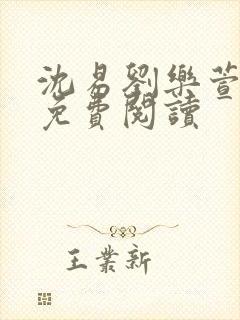 沈易劉樂萱
免費閱讀
王業新